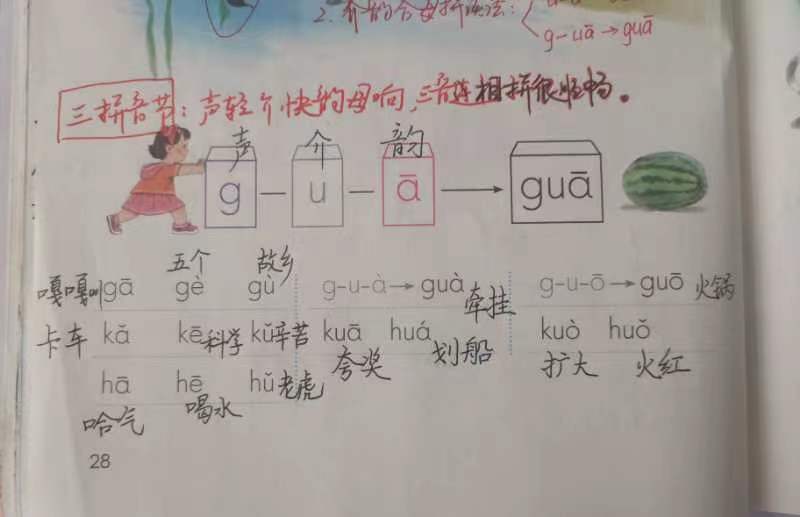 2. 介韵合母拼读法:
g-uā→guā
三拼音节:声轻介快韵母响,三音连相拼很顺畅。
声 介 韵
g — u — ā → guā
五个 故乡
嘎嘎叫 gā gè gù g-u-à→guà 牵挂 g-u-ō→guō 火锅
卡车 kǎ kē 科学 kǔ 辛苦 kuā huá kuò huǒ
夸奖 划船 扩大 火红
hā hē hǔ 老虎
哈气 喝水
28